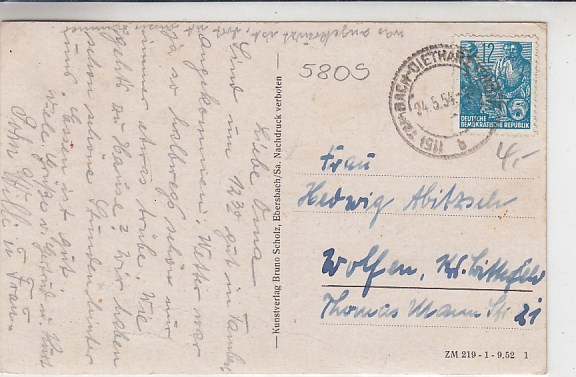 Liebe Oma
Sind um 12³⁰ gut in Tambach
angekommen. Wetter war
so halbwegs schön nur
immer etwas trübe. Wie
geht's zu Hause? Wir haben
schon schöne Stunden hinter
uns. Essen ist gut
Viele Grüße v. Gerd u.
u. Frau.
was angekreuzt ist, dort
— Kunstverlag Bruno Scholz, Ebersbach/Sa. Nachdruck verboten —
5805
TAMBACH-DIETHARZ
24.5.54.
(15)
a
12
5
DEUTSCHE
DEMOKRATISCHE REPUBLIK
4,-
Frau
Hedwig Abitzsch
Wolfen, Krs. Bitterfeld
Thomas Mann Str. 21
ZM 219 - 1 - 9,52 1